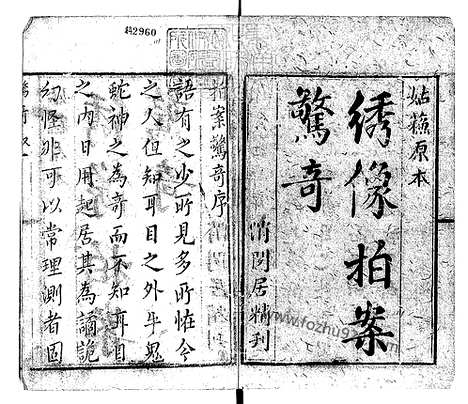 姑蘇原本
綉像拍案
驚奇
消閑居精刊
拍案驚奇序
語有之少所見多所怪今
之人但知耳目之外牛鬼
蛇神之為奇而不知耳目
之內日用起居其為譎詭
幻怪非可以常理測者固
2960